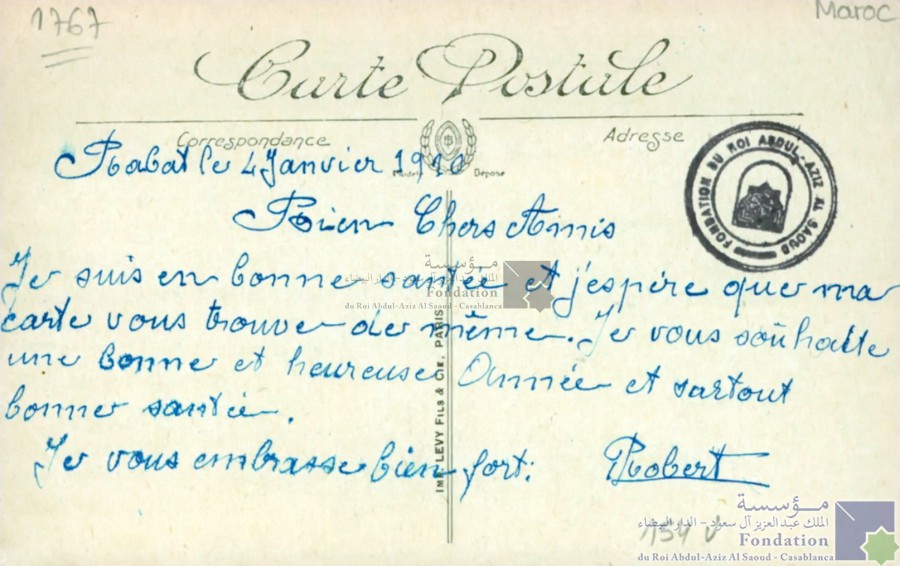 1767
Maroc
Carte Postale
Correspondance
Adresse
Modèle Déposé
Rabat le 4 Janvier 19
Bien Chers Amis
Je suis en bonne santée et j'espère que ma
carte vous trouve de même. Je vous souhaite
une bonne et heureuse Année et surtout
bonne santée.
Je vous embrasse bien fort. Robert
IMP. LEVY FILS & CIE, PARIS
FONDATION DU ROI ABDUL-AZIZ AL SAOUD
مؤسسة
الملك عبد العزيز آل سعود - الدار البيضاء
Fondation
du Roi Abdul-Aziz Al Saoud - Casablanca
154 v
مؤسسة
الملك عبد العزيز آل سعود - الدار البيضاء
Fondation
du Roi Abdul-Aziz Al Saoud - Casablanca